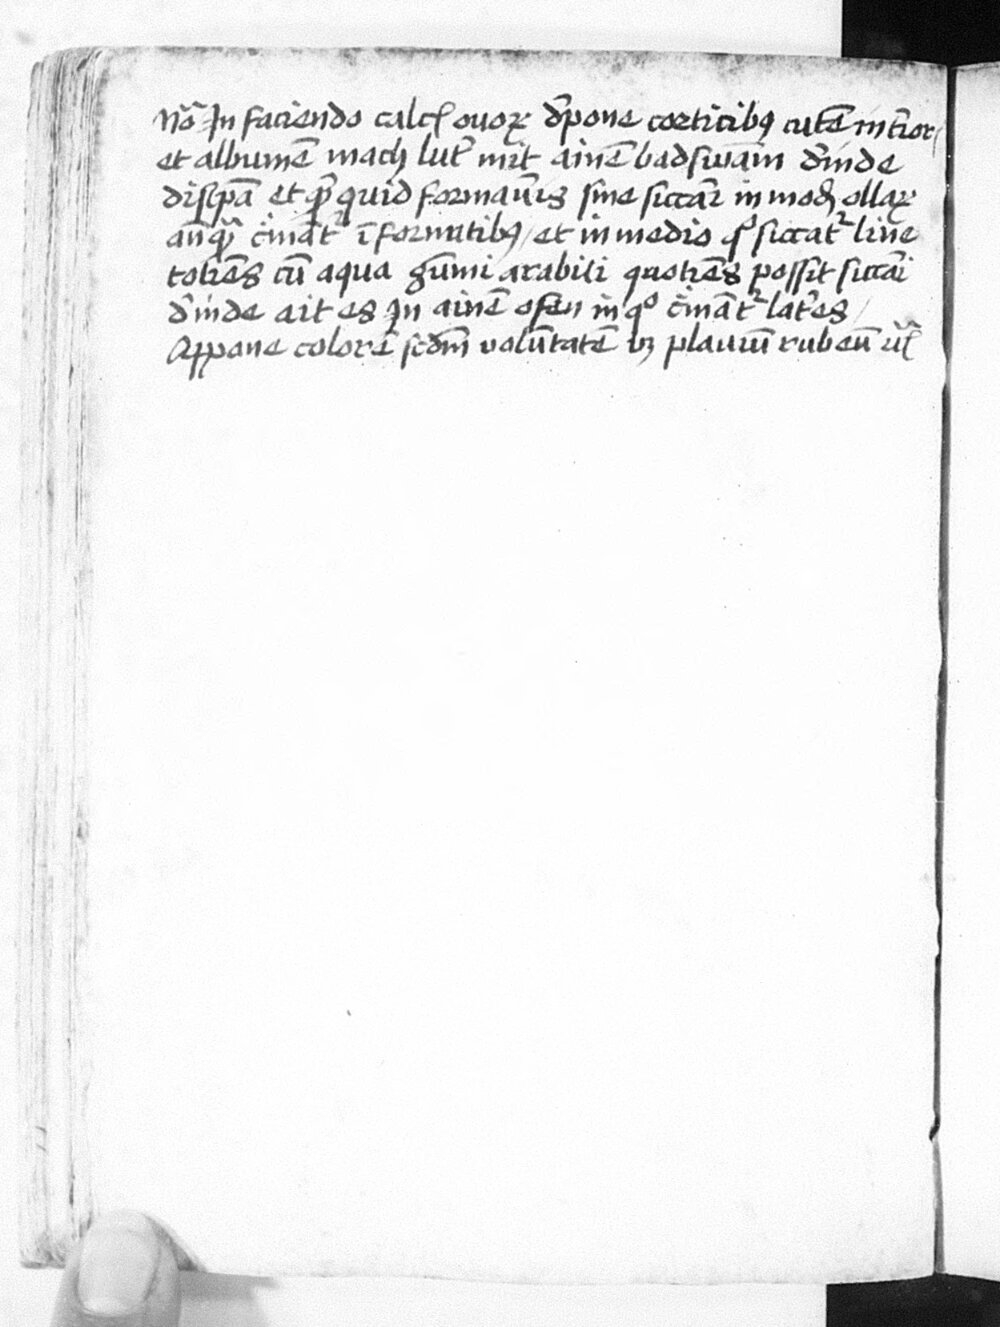 No̅ In faciendo calcꝭ ouoꝝ d̅pone corticibꝰ cutē int̅ior
et albumē mach lut̅ mit ainē badswam d̅inde
disspa̅ et p̅ quid formau̅is sine siccar̅ in mod̅ ollaꝝ
an̅qᷓ c̅iant᷑ i̅ formatibꝰ / et in medio qͦ siccat᷑ line
totiēs cū aqua gūmi arabili quotiēs possit siccāi
d̅inde ait es In ainē ofen in qͦ c̅mant᷑ lat̅es /
Appone colorē scd̅m volūtatē vꝫ plauiū rubeū